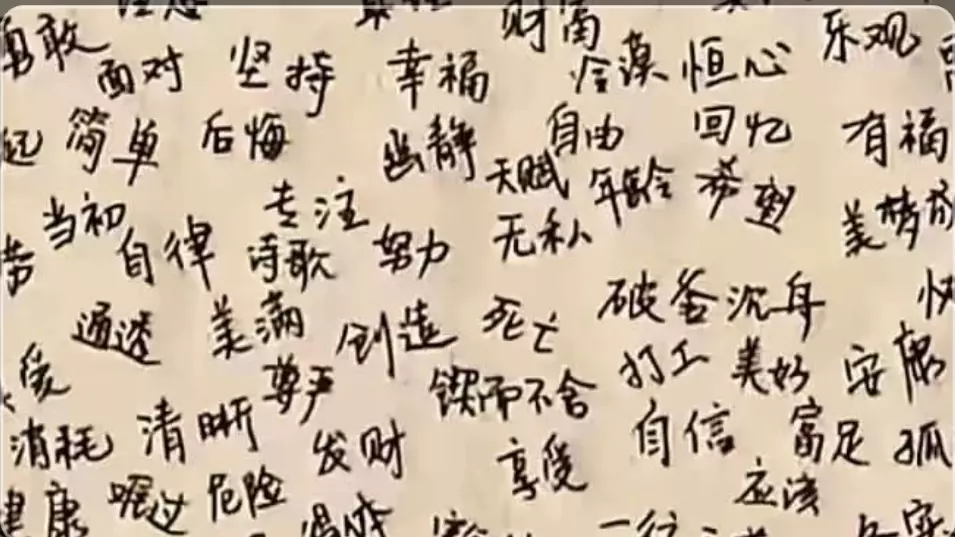 财富 乐观
勇敢 面对 坚持 幸福 冷漠 恒心
简单 后悔 幽静 自由 回忆 有福
天赋 年龄 希
当初 专注 无私 美梦
自律 诗歌 努力
通透 美满 创造 死亡 破釜沉舟
爱 尊严 锲而不舍 打工 美好 安康
消耗 清晰 发财 享受 自信 富足 孤
健康 危险 应该